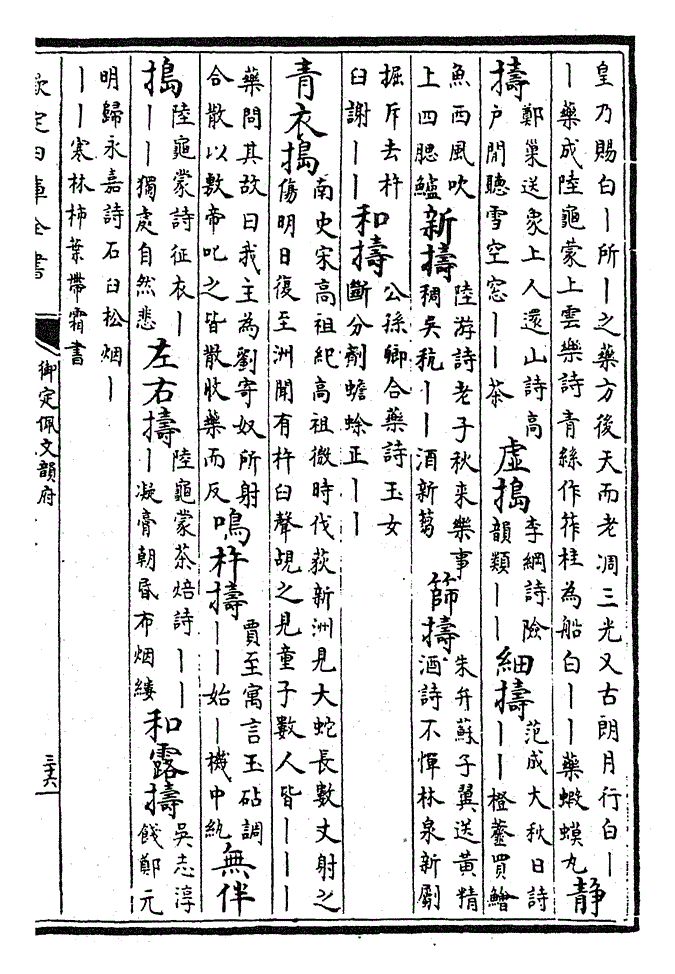 皇乃賜白丨所丨之藥方後天而老凋三光又古朗月行白丨
丨藥成陸龜蒙上雲樂詩青絲作筰桂為船白丨丨藥蝦蟆丸
静
擣
鄭巢送象上人還山詩高
戶閒聽雪空窓丨丨茶
虛搗
李綱詩險
韻類丨丨
細擣
范成大秋日詩
丨丨橙虀買鱠
魚西風吹
上四腮鱸
新擣
陸游詩老子秋来樂事
稠吳秔丨丨酒新蒭
篩擣
朱升蘇子翼送黄精
酒詩不憚林泉新劚
掘斥去杵
臼謝丨丨
和擣
公孫卿合藥詩玉女
斷分劑蟾蜍正丨丨
青衣搗
南史宋高祖紀高祖微時伐荻新洲見大蛇長數丈射之
傷明日復至洲聞有杵臼聲覘之見童子數人皆丨丨丨
藥問其故曰我主為劉寄奴所射
合散以敷帝叱之皆散收藥而反
鳴杵擣
賈至寓言玉砧調
丨丨始丨機中紈
無伴
搗
陸龜蒙詩征衣丨
丨丨獨處自然悲
左右擣
陸龜蒙茶焙詩丨丨
丨凝膏朝昏布烟縷
和露擣
吳志淳
餞鄭元
明歸永嘉詩石臼松烟丨
丨丨寒林柿葉帶霜書
欽定四庫全書
御定佩文韻府
三十六